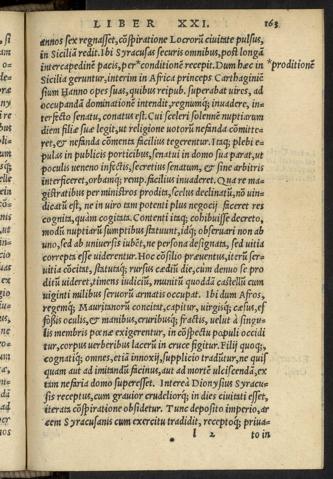 LIBER XXI. 163
annos sex regnasset, cōspiratione Locrorū ciuitate pulsus,
in Siciliā redit. Ibi Syracusas securis omnibus, post longā
intercapedinē pacis, per *conditionē recepit. Dum hæc in *proditionē
Sicilia geruntur, interim in Africa princeps Carthaginiē
sium Hanno opes suas, quibus reipub. superabat uires, ad
occupandā dominationē intendit, regnumq; inuadere, in-
terfecto senatu, conatus est. Cui sceleri solemnē nuptiarum
diem filiæ suæ legit, ut religione uotorū nefanda cōmitte-
ret, & nefanda cōmenta facilius tegerentur. Itaq; plebi e-
pulas in publicis porticibus, senatui in domo sua parat, ut
poculis ueneno infectis, secretius senatum, & sine arbitris
interficeret, orbamq; remp. facilius inuaderet. Qua re ma-
gistratibus per ministros prodita, scelus declinatū, nō uin-
dicatū est, ne in uiro tam potenti plus negocij faceret res
cognita, quàm cogitata. Contenti itaq; cohibuisse decreto,
modū nuptiarū sumptibus statuunt, idq; obseruari non ab
uno, sed ab uniuersis iubēt, ne persona designata, sed uitia
correpta esse uiderentur. Hoc cōsilio præuentus, iterū ser-
uitia cōcitat, statutaq; rursus cædiū die, cum denuo se pro
ditū uideret, timens iudiciū, munitū quoddā castellū cum
uiginti milibus seruorū armatis occupat. Ibi dum Afros,
regemq; Mauritanorū concitat, capitur, uirgisq; cæsus, ef
fossis oculis, & manibus, cruribusq; fractis, uelut à singu-
lis membris pœnæ exigerentur, in cōspectu populi occidi
tur, corpus uerberibus lacerū in cruce figitur. Filij quoq;,
cognatiq; omnes, etiā innoxij, supplicio tradūtur, ne quis
quam aut ad imitandū facinus, aut ad mortē ulciscendā, ex
tam nefaria domo superesset. Interea Dionysius Syracu-
sis receptus, cum grauior crudeliorq; in dies ciuitati esset,
iterata cōspiratione obsidetur. Tunc deposito imperio, ar
cem Syracusanis cum exercitu tradidit, receptoq; priua-
l 2 to in